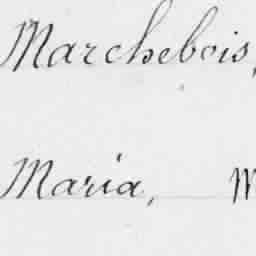 Marchebois,
Maria, M